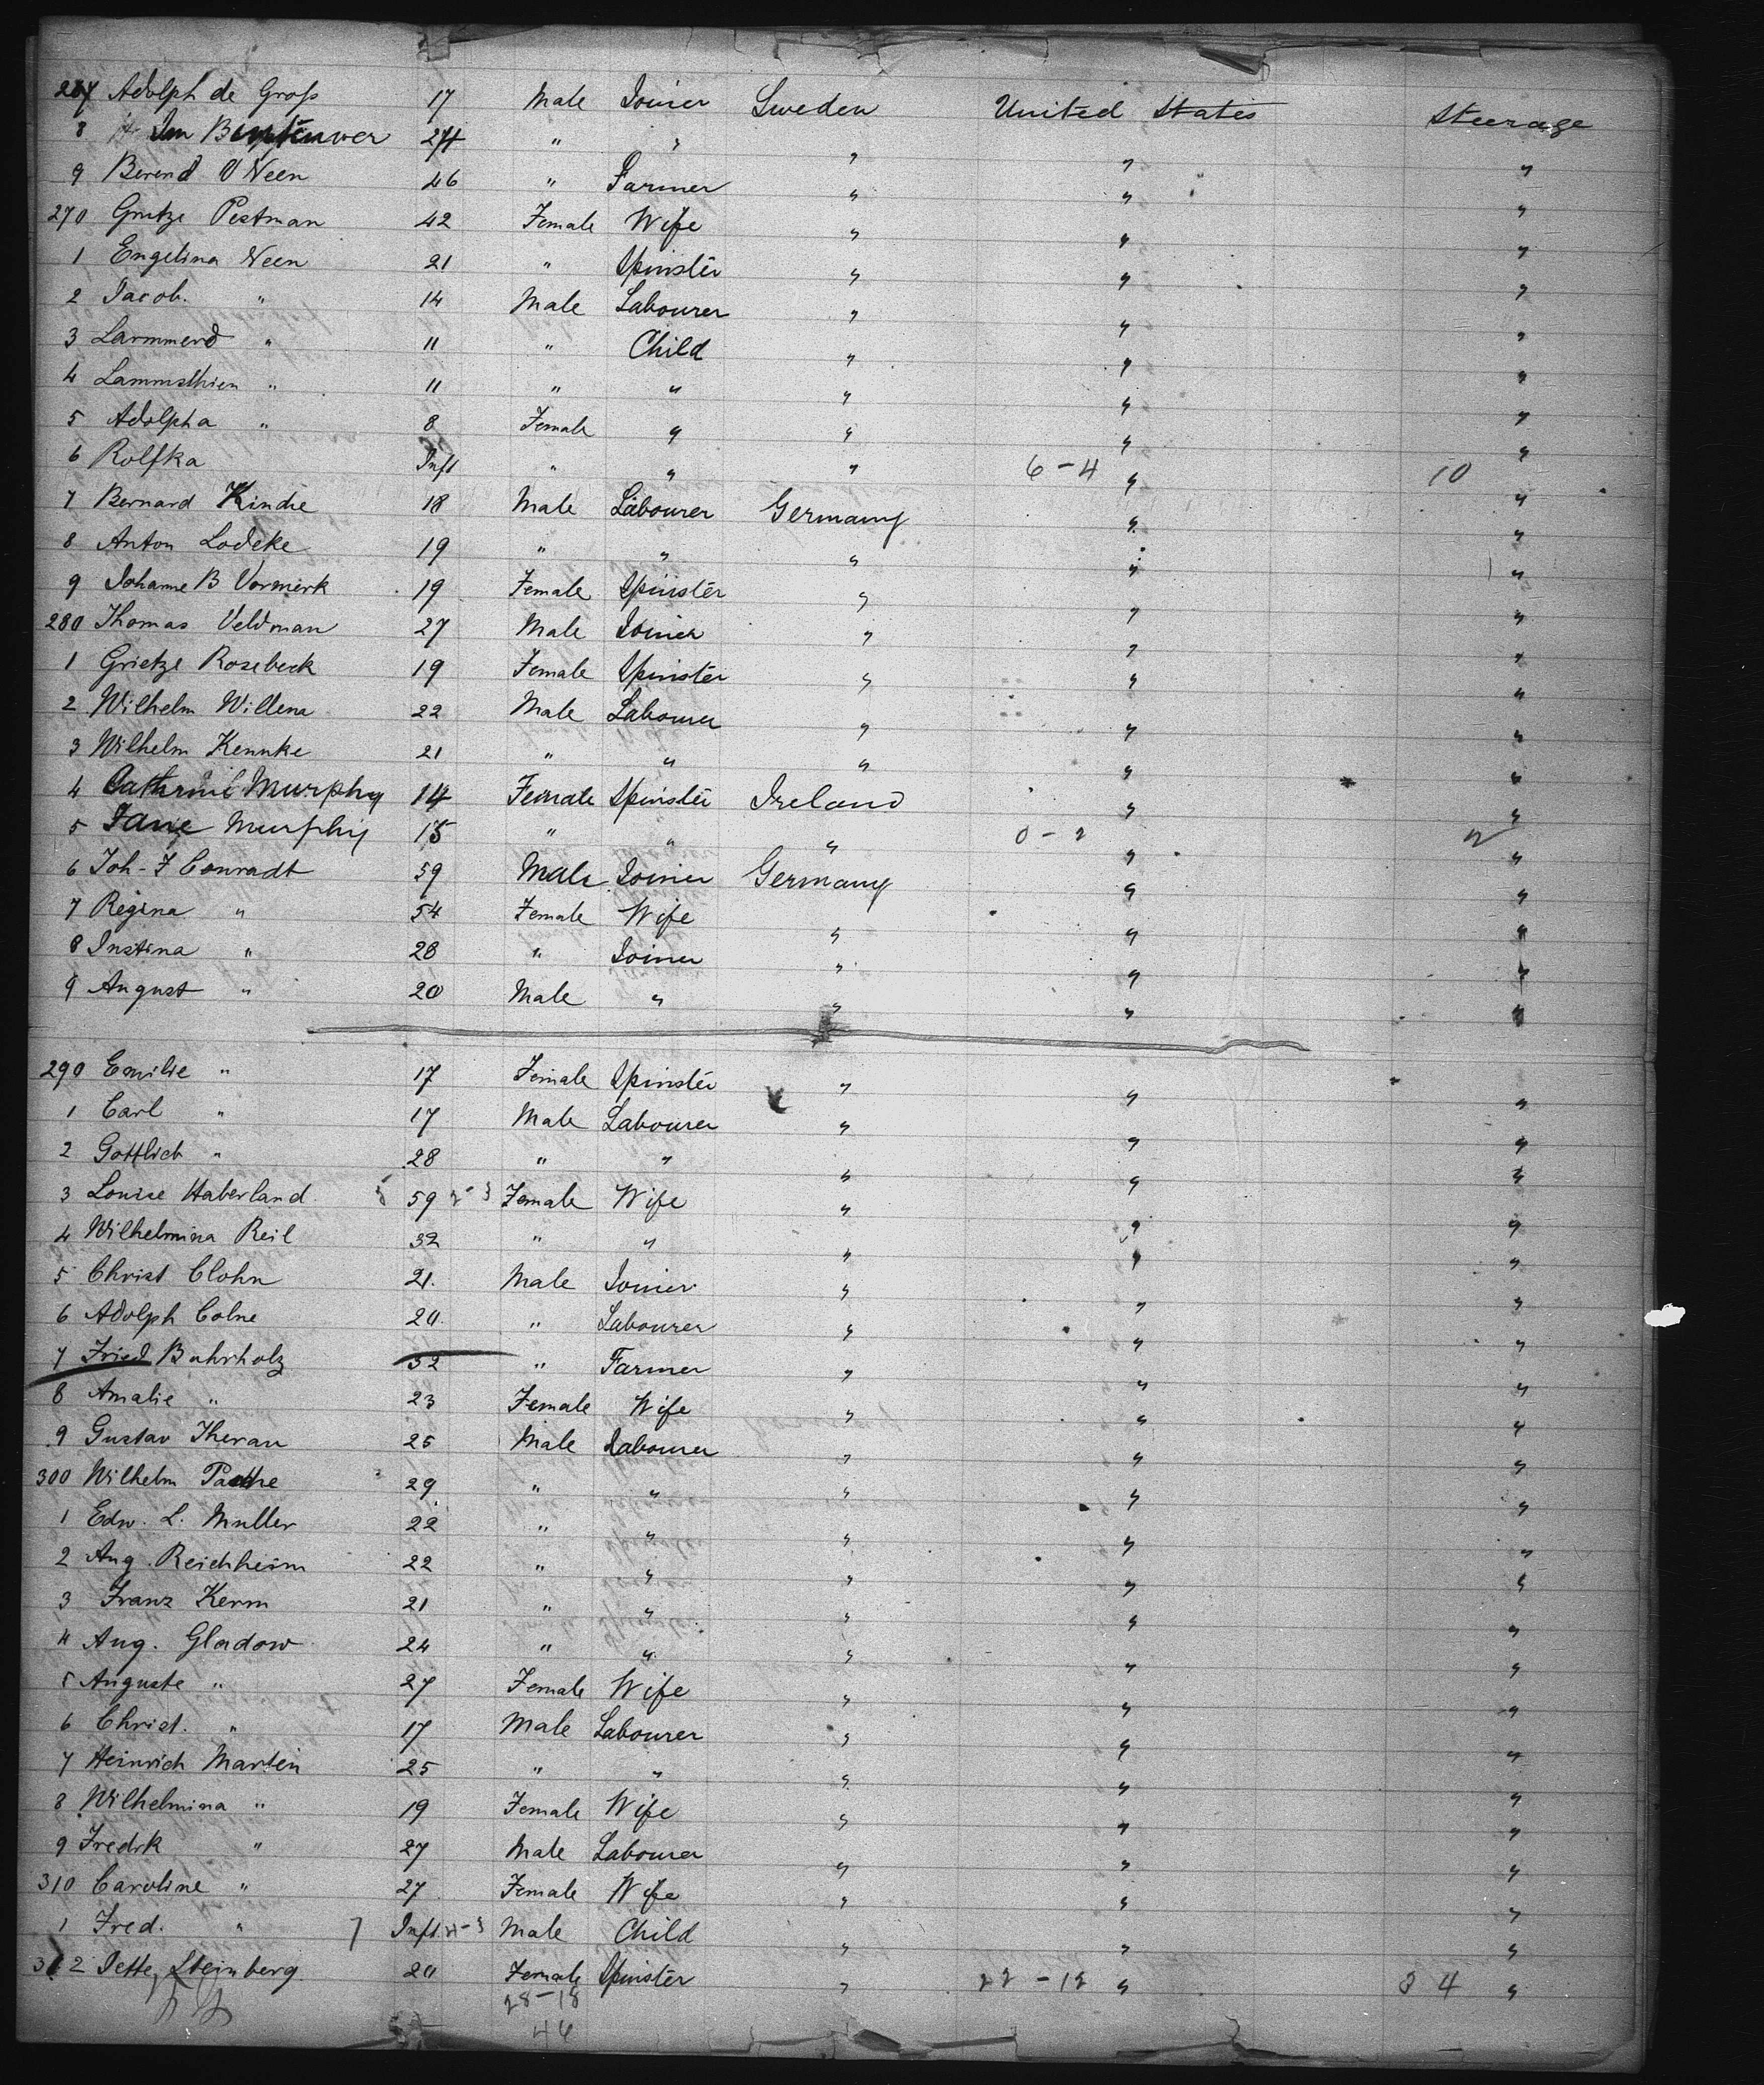 267 Adolph de Gross 17 Male Joiner Sweden United States Steerage
8 24 " " " " "
9 Berend V Neen 46 " Farmer " " "
270 Grutze Pestman 42 Female Wife " " "
1 Engelina Neen 21 " Spinster " " "
2 Jacob. " 14 Male Labourer " " "
3 Lammerd " 11 " Child " " "
4 Lammsthien " 11 " " " " "
5 Adolpha " 8 Female " " " "
6 Rolfka Inft " " " 6-4 " 10 "
7 Bernard Kindre 18 Male Labourer Germany " "
8 Anton Lodeke 19 " " " " "
9 Johanne B Vormerk 19 Female Spinster " " "
280 Thomas Veldman 27 Male Joiner " " "
1 Grietze Rosebeck 19 Female Spinster " " "
2 Wilhelm Willena 22 Male Labourer " " "
3 Wilhelm Kennke 21 " " " " "
4 Catherine Murphy 14 Female Spinster Ireland " "
5 Jane Murphy 15 " " " 0-2 " 2 "
6 Joh-F Conradt 59 Male Joiner Germany " "
7 Regina " 54 Female Wife " " "
8 Instina " 28 " Joiner " " "
9 August " 20 Male " " " "
290 Emilie " 17 Female Spinster " " "
1 Carl " 17 Male Labourer " " "
2 Gottlieb " 28 " " " " "
3 Louise Haberland 59 Female Wife " " "
4 Wilhelmina Reil 32 " " " " "
5 Christ Clohn 21. Male Joiner " " "
6 Adolph Colne 20. " Labourer " " "
7 Fried Buhrholz 32 " Farmer " " "
8 Amalie " 23 Female Wife " " "
9 Gustav Theran 25 Male Labourer " " "
300 Wilhelm 29 " " " " "
1 Edw. L. Muller 22 " " " " "
2 Aug. Reichheim 22 " " " " "
3 Franz Kerm 21 " " " " "
4 Aug. Gladow 24 " " " " "
5 Auguste " 27 Female Wife " " "
6 Christ. " 17 Male Labourer " " "
7 Heinrich Martein 25 " " " " "
8 Wilhelmina " 19 Female Wife " " "
9 Fredrk " 27 Male Labourer " " "
310 Caroline " 27 Female Wife " " "
1 Fred. " Inft. Male Child " " "
312 Jette Steinberg 20 Female Spinster " 22-12 " 34 "
28-18
46